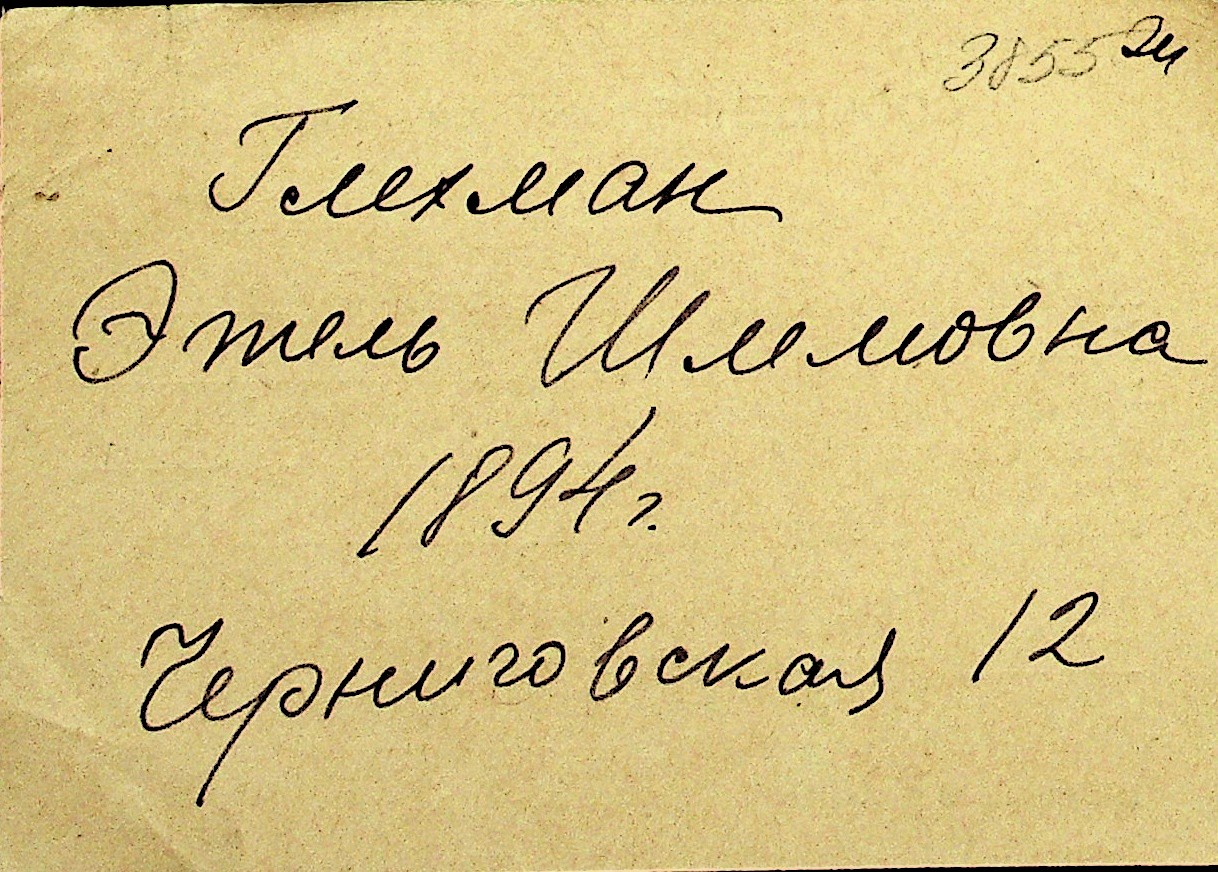 3855
Глехман
Этель Шлемовна
1894 г.
Черниговская 12